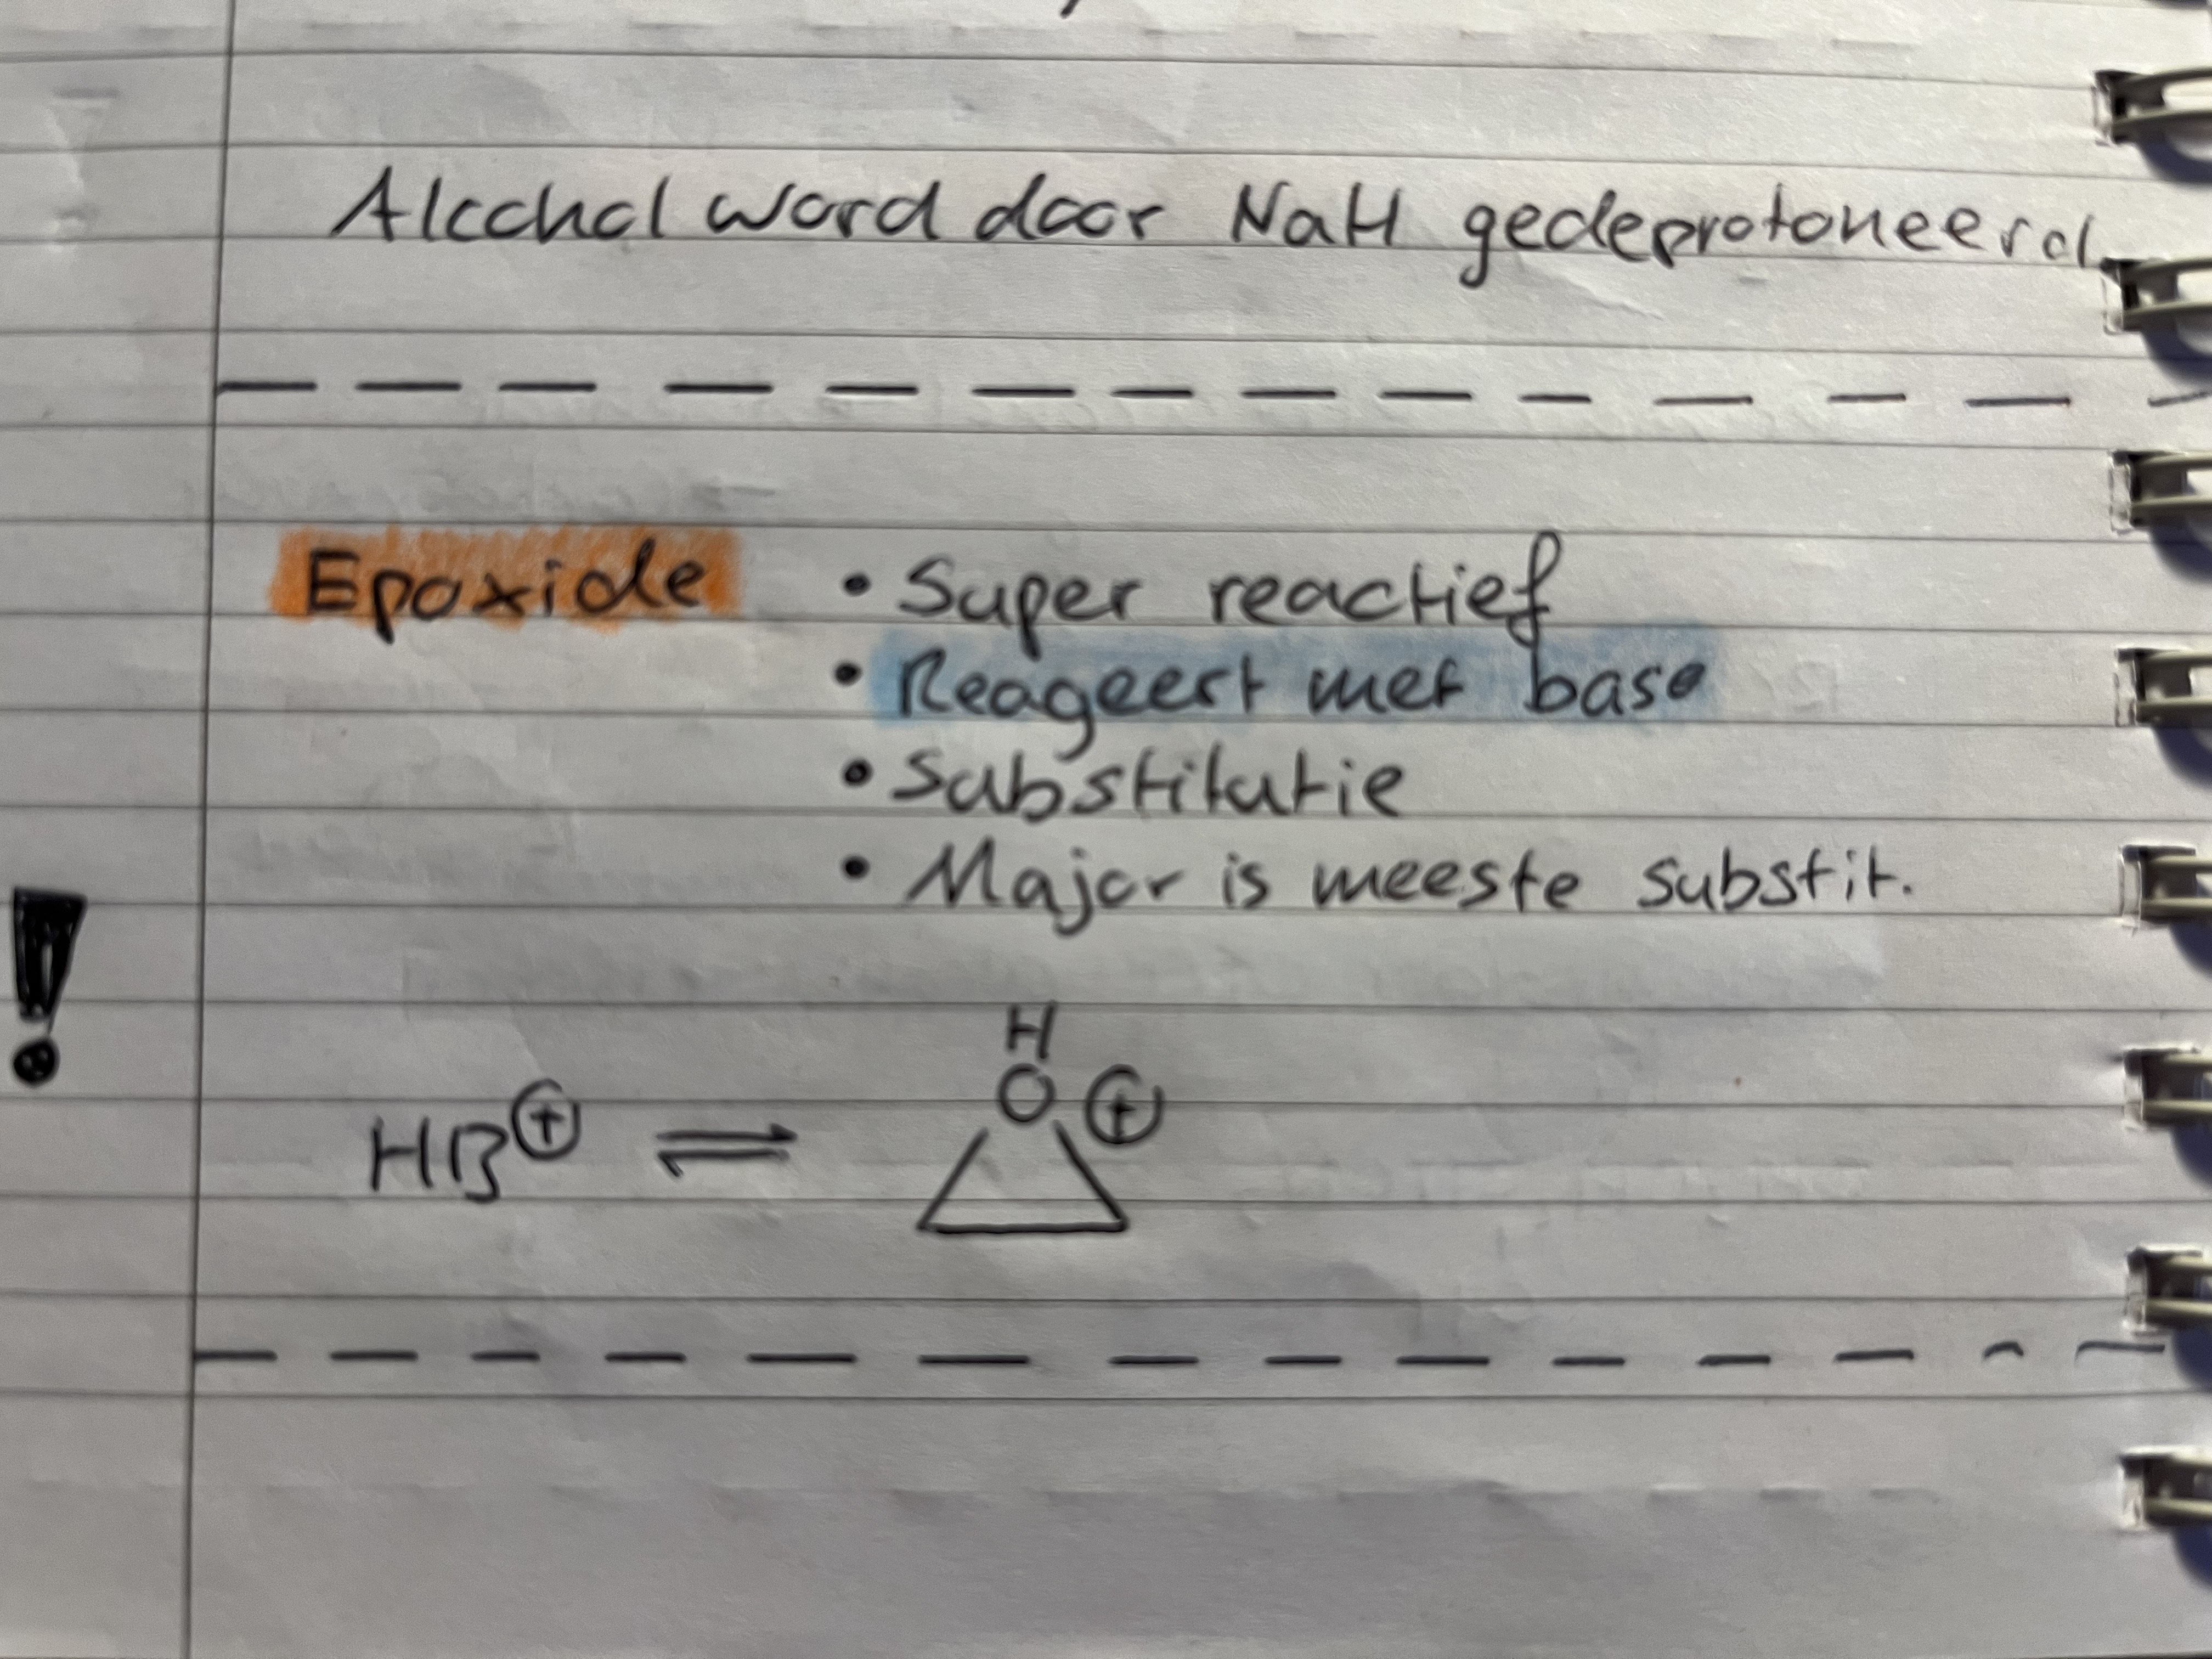 Alcohol word door NaH gedeprotoneerd
Epoxide • Super reactief
• Reageert met base
• Substitutie
• Major is meeste substit.
H
HB⊕ ⇌ O ⊕